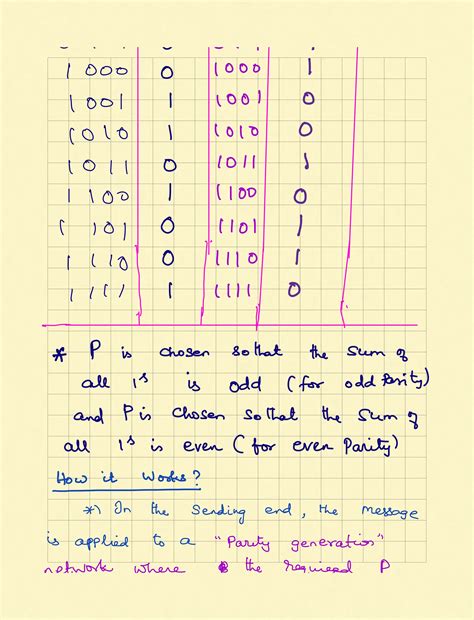 1000 0 1000 1
1001 1 1001 0
1010 1 1010 0
1011 0 1011 1
1100 1 1100 0
1101 0 1101 1
1110 0 1110 1
1111 1 1111 0
* P is chosen so that the sum of
all 1s is odd (for odd Parity)
and P is chosen so that the sum of
all 1s is even (for even Parity)
How it works?
*) On the sending end, the message
is applied to a "Parity generation"
network where the required P